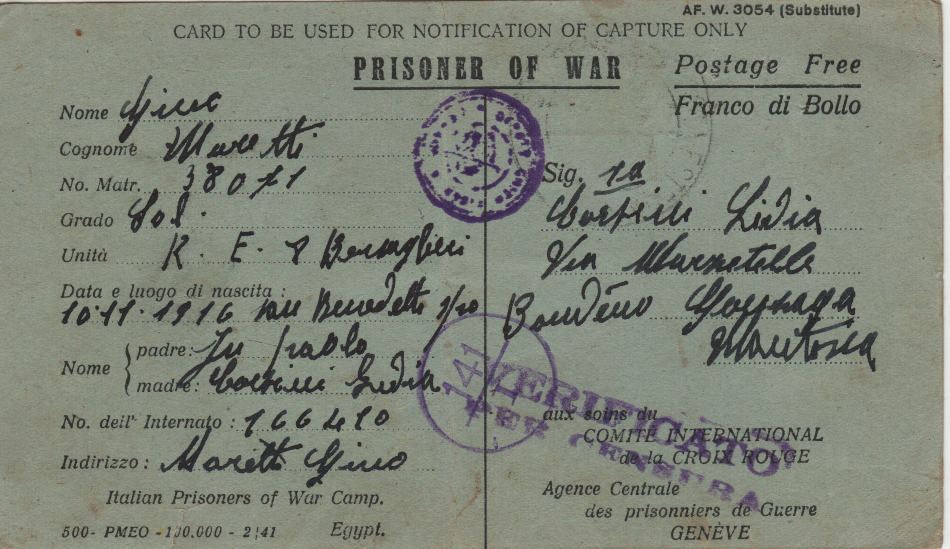 AF. W. 3054 (Substitute)
CARD TO BE USED FOR NOTIFICATION OF CAPTURE ONLY
PRISONER OF WAR
Postage Free
Franco di Bollo
Nome Gino
Cognome Maretti
No. Matr. 38071
Grado Sol.
Unità R. E. 8 Bersaglieri
Data e luogo di nascita :
10.11.1916 San Benedetto Po
Nome
padre: Fu Paolo
madre: Corsini Lidia
No. dell' Internato : 166410
Indirizzo : Maretti Gino
Italian Prisoners of War Camp.
500- PMEO - 100.000 - 2/41 Egypt.
Sig. ra
Corsini Lidia
Via
Bondeno Gonzaga
Mantova
141
VERIFICATO
PER CENSURA
aux soins du
COMITÉ INTERNATIONAL
de la CROIX ROUGE
Agence Centrale
des prisonniers de Guerre
GENÈVE